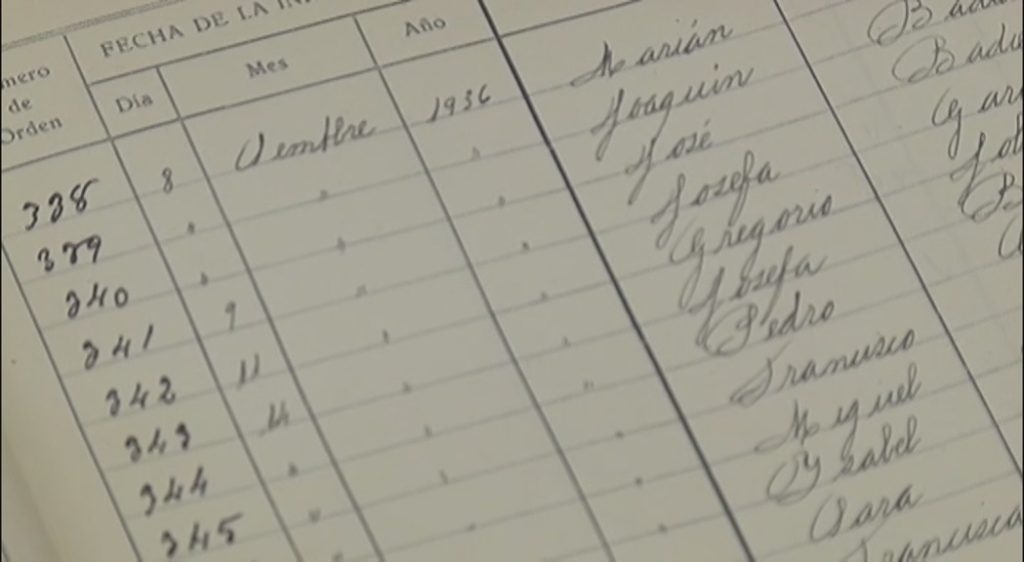 FECHA DE LA IN
mero de Orden Día Mes Año
338 8 Sembre 1936 Marián
339 " " " Joaquin Badu
340 " " " José Gar
341 9 " " Josefa
342 11 " " Gregorio
343 14 " " Josefa
344 " " " Pedro
345 " " " Francisco
Miguel
Ysabel
Sara
Francisca